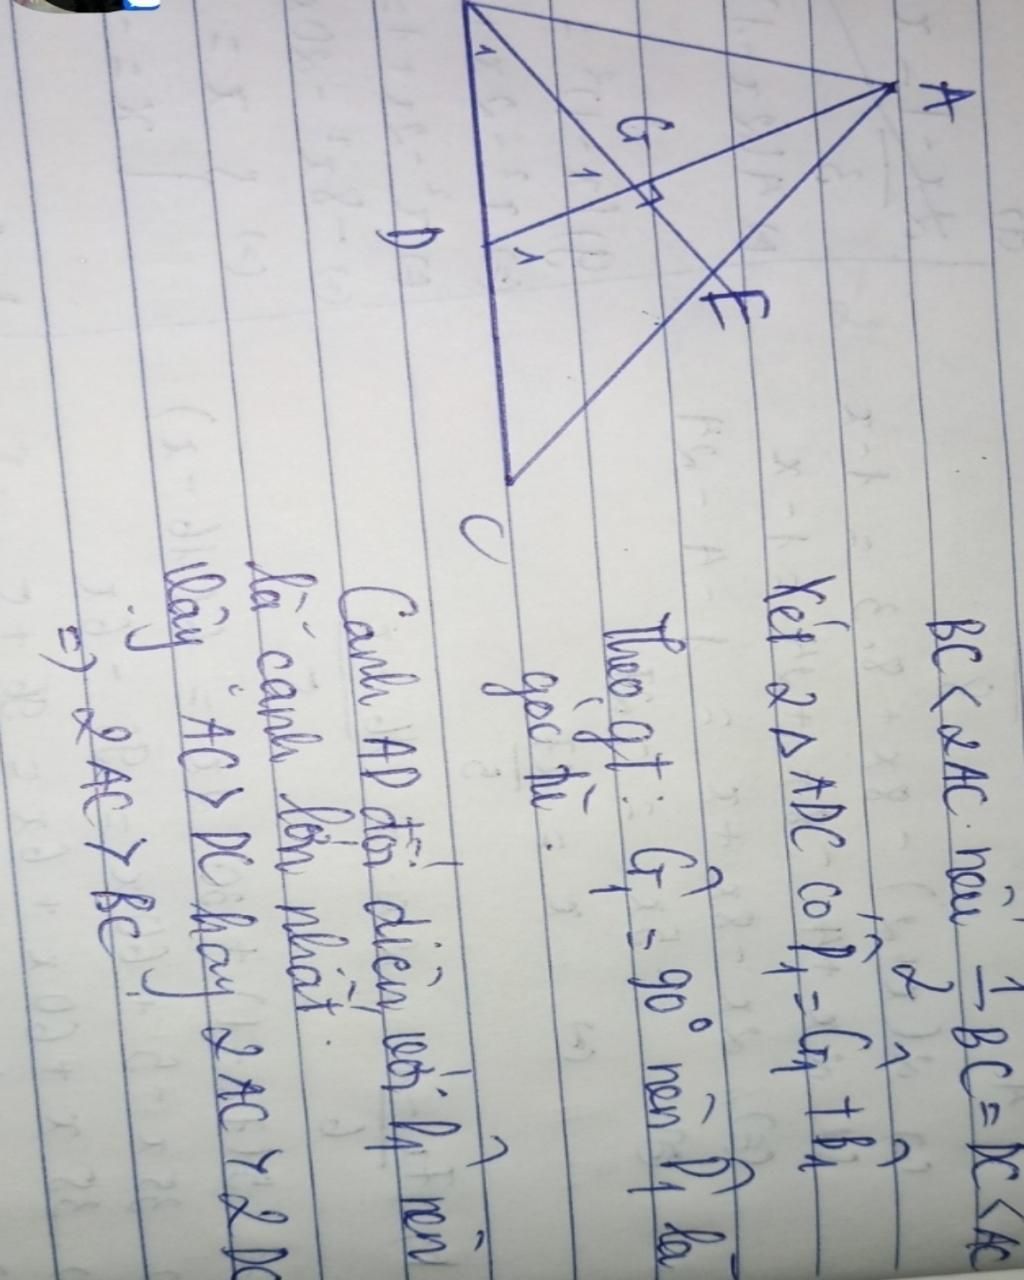 A
1
G
1
E
D
1
C
BC < 2AC nếu 1/2 BC = DC < AC
Xét 2 Δ ADC có D̂₁ = Ĝ₁ + B̂₁
Theo gt: Ĝ₁ = 90° nên D̂₁ là
góc tù.
Cạnh AD đối diện với D̂₁ nên
là cạnh lớn nhất.
Vậy AC > DC hay 2AC > 2DC
=> 2AC > BC